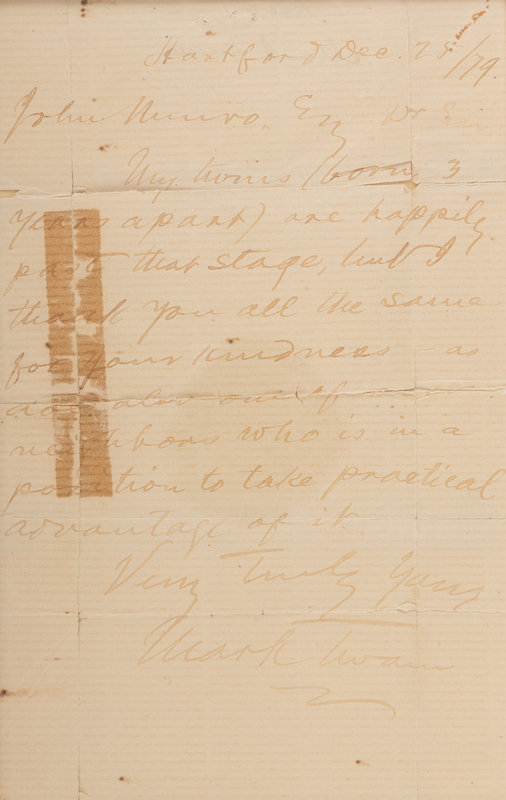 Hartford Dec. 25/79.
John Munro, Esq Dr Sir
My twins (born 3
years apart) are happily
past that stage, but I
thank you all the same
for your kindness – as
does also one of our
neighbors who is in a
position to take practical
advantage of it.
Very Truly Yours
Mark Twain